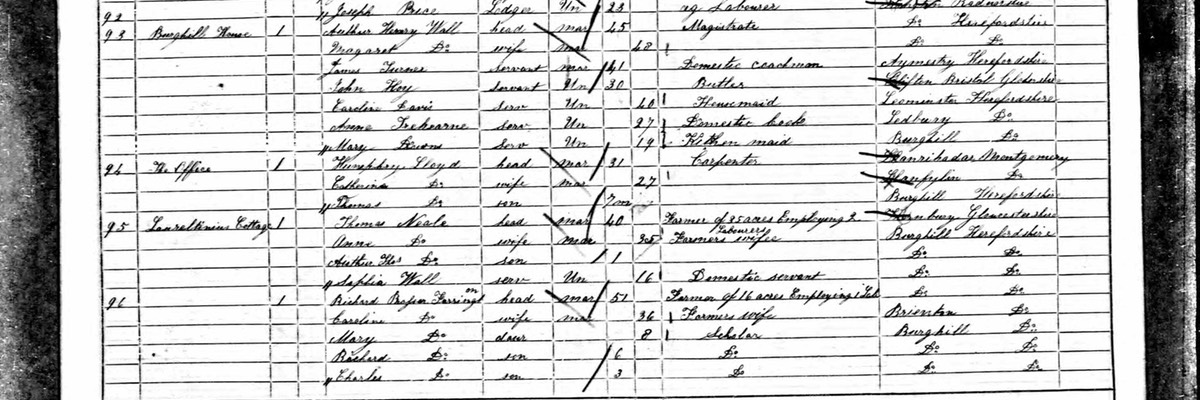 92 Joseph Ledger Un 23 ag Labourer
93 Burghill House 1 Arthur Henry Wall head mar 45 Magistrate Do Herefordshire
Margaret Do wife mar 48 Do Do
James Turner servant mar 41 Domestic coachman Aymestry Herefordshire
John Hoy servant Un 30 Butler Clifton Bristol
Caroline Davis serv Un 40 Housemaid Leominster Herefordshire
Anne Trehearne serv Un 27 Domestic Cook Ledbury Do
Mary serv Un 19 Kitchen maid Burghill Do
94 The Office 1 Humphry Lloyd head mar 31 Carpenter Montgomery
Catherine Do wife mar 27 Do
Thomas Do son 7 m Burghill Herefordshire
95 Cottage 1 Thomas Neale head mar 40 Farmer of 35 acres Employing 2 Labourers Gloucestershire
Anne Do wife mar Farmers wife Burghill Herefordshire
Arthur Thos Do son 1 Do Do
Sophia Wall serv Un 16 Domestic servant Do Do
96 1 Richard head mar 51 Farmer of 16 acres Employing 1 Lab Do Do
Caroline Do wife mar 36 Farmers wife Do
Mary Do daur 8 Scholar Burghill Do
Richard Do son 6 Do Do Do
Charles Do son 3 Do Do Do